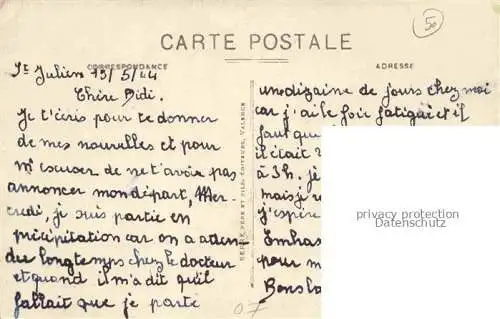 50
CARTE POSTALE
CORRESPONDANCE
ADRESSE
St Julien 13/5/44
Chère Didi.
Je t'écris pour te donner
de mes nouvelles et pour
m'escuser de ne t'avoir pas
annoncer mon départ, Mer-
credi, je suis partie en
précipitation car on a attendu
du longtemps chez le docteur
et quand il m'a dit qu'il
fallait que je parte
une dizaine de jours chez moi
car j'ai le foie fatigué et il
faut que
il était
à 3h. je
mais je
j'espère
Embras
pour m
Bons
PÈRE ET FILS, ÉDITEURS, VALENCE
privacy protection
Datenschutz
07